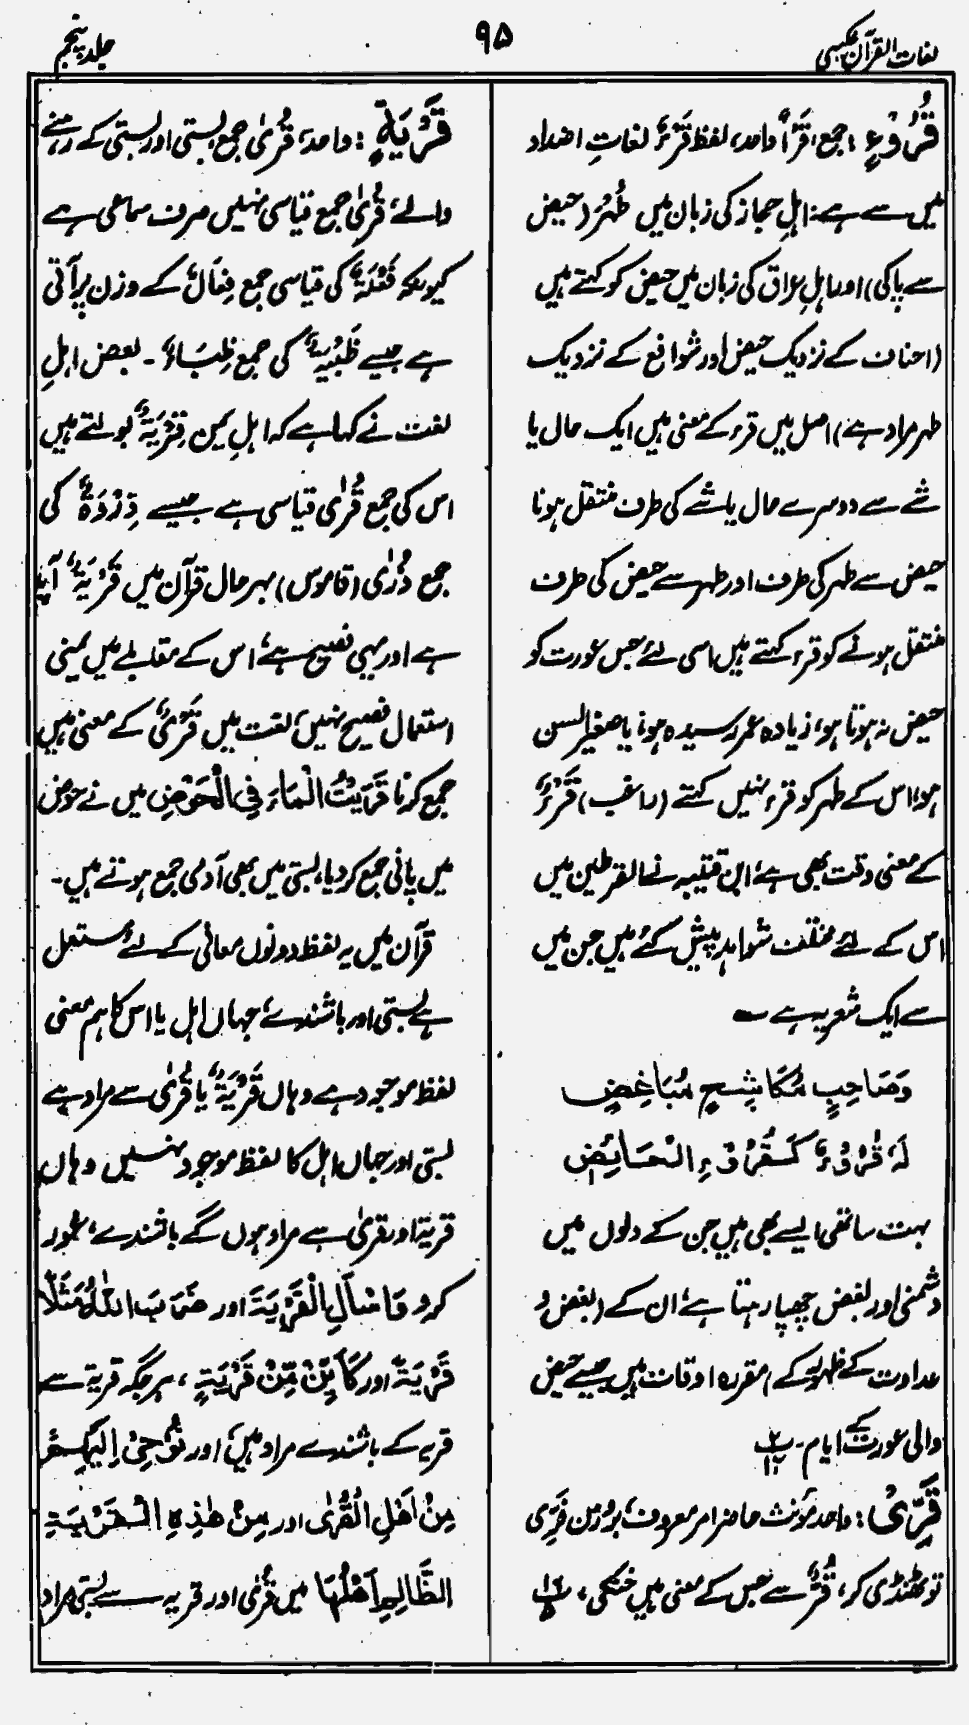 لغات القرآن عکسی
۹۵
جلد پنجم
قُرُوْءٍ : جمع، قَرْأٌ واحد، لفظ قَرْءٌ لغاتِ اضداد
میں سے ہے: اہلِ حجاز کی زبان میں طُہْر (حیض
سے پاکی) اور اہلِ عراق کی زبان میں حیض کو کہتے ہیں
(احناف کے نزدیک حیض اور شوافع کے نزدیک
طہر مراد ہے) اصل میں قرء کے معنی ہیں ایک حال یا
شے سے دوسرے حال یا شے کی طرف منتقل ہونا
حیض سے طہر کی طرف اور طہر سے حیض کی طرف
منتقل ہونے کو قرء کہتے ہیں اسی لئے جس عورت کو
حیض نہ ہوتا ہو، زیادہ عمر رسیدہ ہو، یا صغیر السن
ہو، اس کے طہر کو قرء نہیں کہتے (راغب) قَرْءٌ
کے معنی وقت بھی ہے، ابن قتیبہ نے القرطین میں
اس کے لئے مختلف شواہد پیش کئے ہیں جن میں
سے ایک شعر یہ ہے ؎
وَصَاحِبٍ مُکَاشِحٍ مُبَاغِضٍ
لَہٗ قُرُوْءٌ کَقُرُوْءِ الْحَائِضِ
بہت ساتھی ایسے بھی ہیں جن کے دلوں میں
دشمنی اور بغض چھپا رہتا ہے، ان کے (بغض و
عداوت کے ظہور کے) مقررہ اوقات ہیں جیسے حیض
والی عورت کے ایام۔
قَرِّیْ : واحد مؤنث حاضر امر معروف، بروزن فَرِّی
تو ٹھنڈی کر، قُرٌّ سے جس کے معنی ہیں خنکی،
قَرْیَۃٍ : واحد، قُریٰ جمع، بستی اور بستی کے رہنے
والے، قُریٰ جمع قیاسی نہیں صرف سماعی ہے
کیونکہ فَعْلَۃٌ کی قیاسی جمع فِعَالٌ کے وزن پر آتی
ہے جیسے ظَبْیَۃٌ کی جمع ظِبَاءٌ ۔ بعض اہلِ
لغت نے کہا ہے کہ اہلِ یمن قِرْیَۃٌ بولتے ہیں
اس کی جمع قُریٰ قیاسی ہے جیسے ذِرْوَۃٌ کی
جمع ذُریٰ (قاموس) بہرحال قرآن میں قَرْیَۃٌ آیا
ہے اور یہی فصیح ہے، اس کے مقابلے میں یمنی
استعمال فصیح نہیں، لغت میں قَرْیٌ کے معنی ہیں
جمع کرنا قَرَیْتُ الْمَاءَ فِی الْحَوْضِ میں نے حوض
میں پانی جمع کر دیا، بستی میں بھی آدمی جمع ہوتے ہیں۔
قرآن میں یہ لفظ دونوں معانی کے لئے مستعمل
ہے بستی اور باشندے، جہاں اہل یا اس کا ہم معنی
لفظ موجود ہے وہاں قَرْیَۃٌ یا قُریٰ سے مراد ہے
بستی اور جہاں اہل کا لفظ موجود نہیں وہاں
قریۃ اور قریٰ سے مراد ہوں گے باشندے، غور
کرو فَاسْأَلِ الْقَرْیَۃَ اور ضَرَبَ اللّٰہُ مَثَلًا
قَرْیَۃً اور کَأَیِّنْ مِّنْ قَرْیَۃٍ ، ہر جگہ قریۃ سے
قریہ کے باشندے مراد ہیں، اور نُوْحِیْ اِلَیْہِمْ
مِنْ اَہْلِ الْقُرٰی اور مِنْ ہٰذِہِ الْقَرْیَۃِ
الظَّالِمِ اَہْلُہَا میں قُریٰ اور قریہ سے بستی مراد